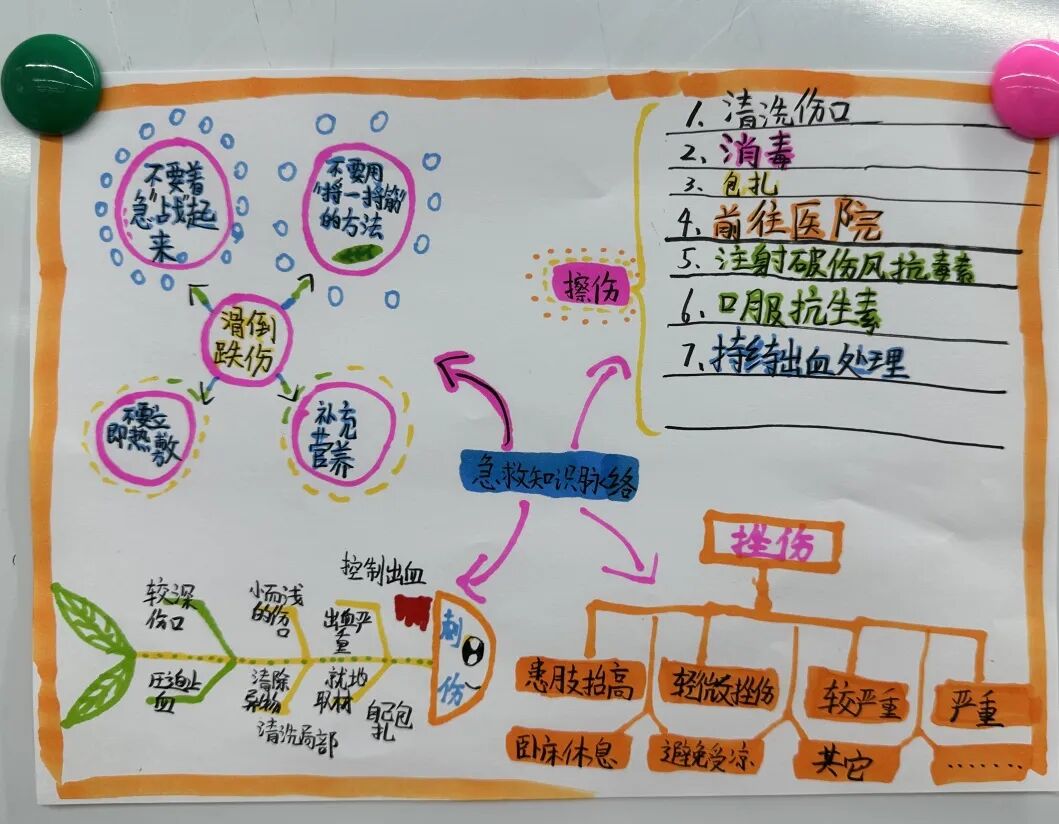 不要着
急“战”起
来
不要用
“捋一捋筋”
的方法
滑倒
跌伤
不要立
即热敷
补充
营养
擦伤
1、清洗伤口
2、消毒
3、包扎
4、前往医院
5、注射破伤风抗毒素
6、口服抗生素
7、持续出血处理
急救知识脉络
控制出血
较深
伤口
小而浅
的伤口
出血严
重
刺
伤
压迫止
血
清除
异物
清洗局部
就地
取材
自己包
扎
挫伤
患肢抬高
轻微挫伤
较严重
严重
卧床休息
避免受凉
其它
........